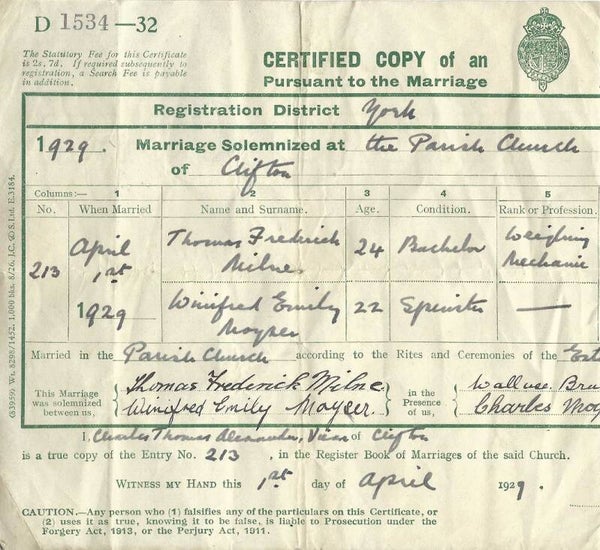 D 1534—32
The Statutory Fee for this Certificate
is 2s. 7d. If required subsequently to
registration, a Search Fee is payable
in addition.
CERTIFIED COPY of an
Pursuant to the Marriage
Registration District York
1929. Marriage Solemnized at the Parish Church
of Clifton
Columns:— 1 2 3 4 5
No. When Married Name and Surname. Age. Condition. Rank or Profession.
213 April 1st 1929
Thomas Frederick Milnes 24 Bachelor Weighing Mechanic
Winifred Emily Moyser 22 Spinster —
Married in the Parish Church according to the Rites and Ceremonies of the
This Marriage was solemnized between us, { Thomas Frederick Milne. } in the Presence of us,
Winifred Emily Moyser. Charles
I, Charles Thomas Alexander, Vicar of Clifton
is a true copy of the Entry No. 213, in the Register Book of Marriages of the said Church.
WITNESS MY HAND this 1st day of April 1929.
CAUTION.—Any person who (1) falsifies any of the particulars on this Certificate, or
(2) uses it as true, knowing it to be false, is liable to Prosecution under the
Forgery Act, 1913, or the Perjury Act, 1911.
(83959). Wt. 8298/1452. 1,000 bks. 8/26. J.C. & S.Ltd. E.3184.